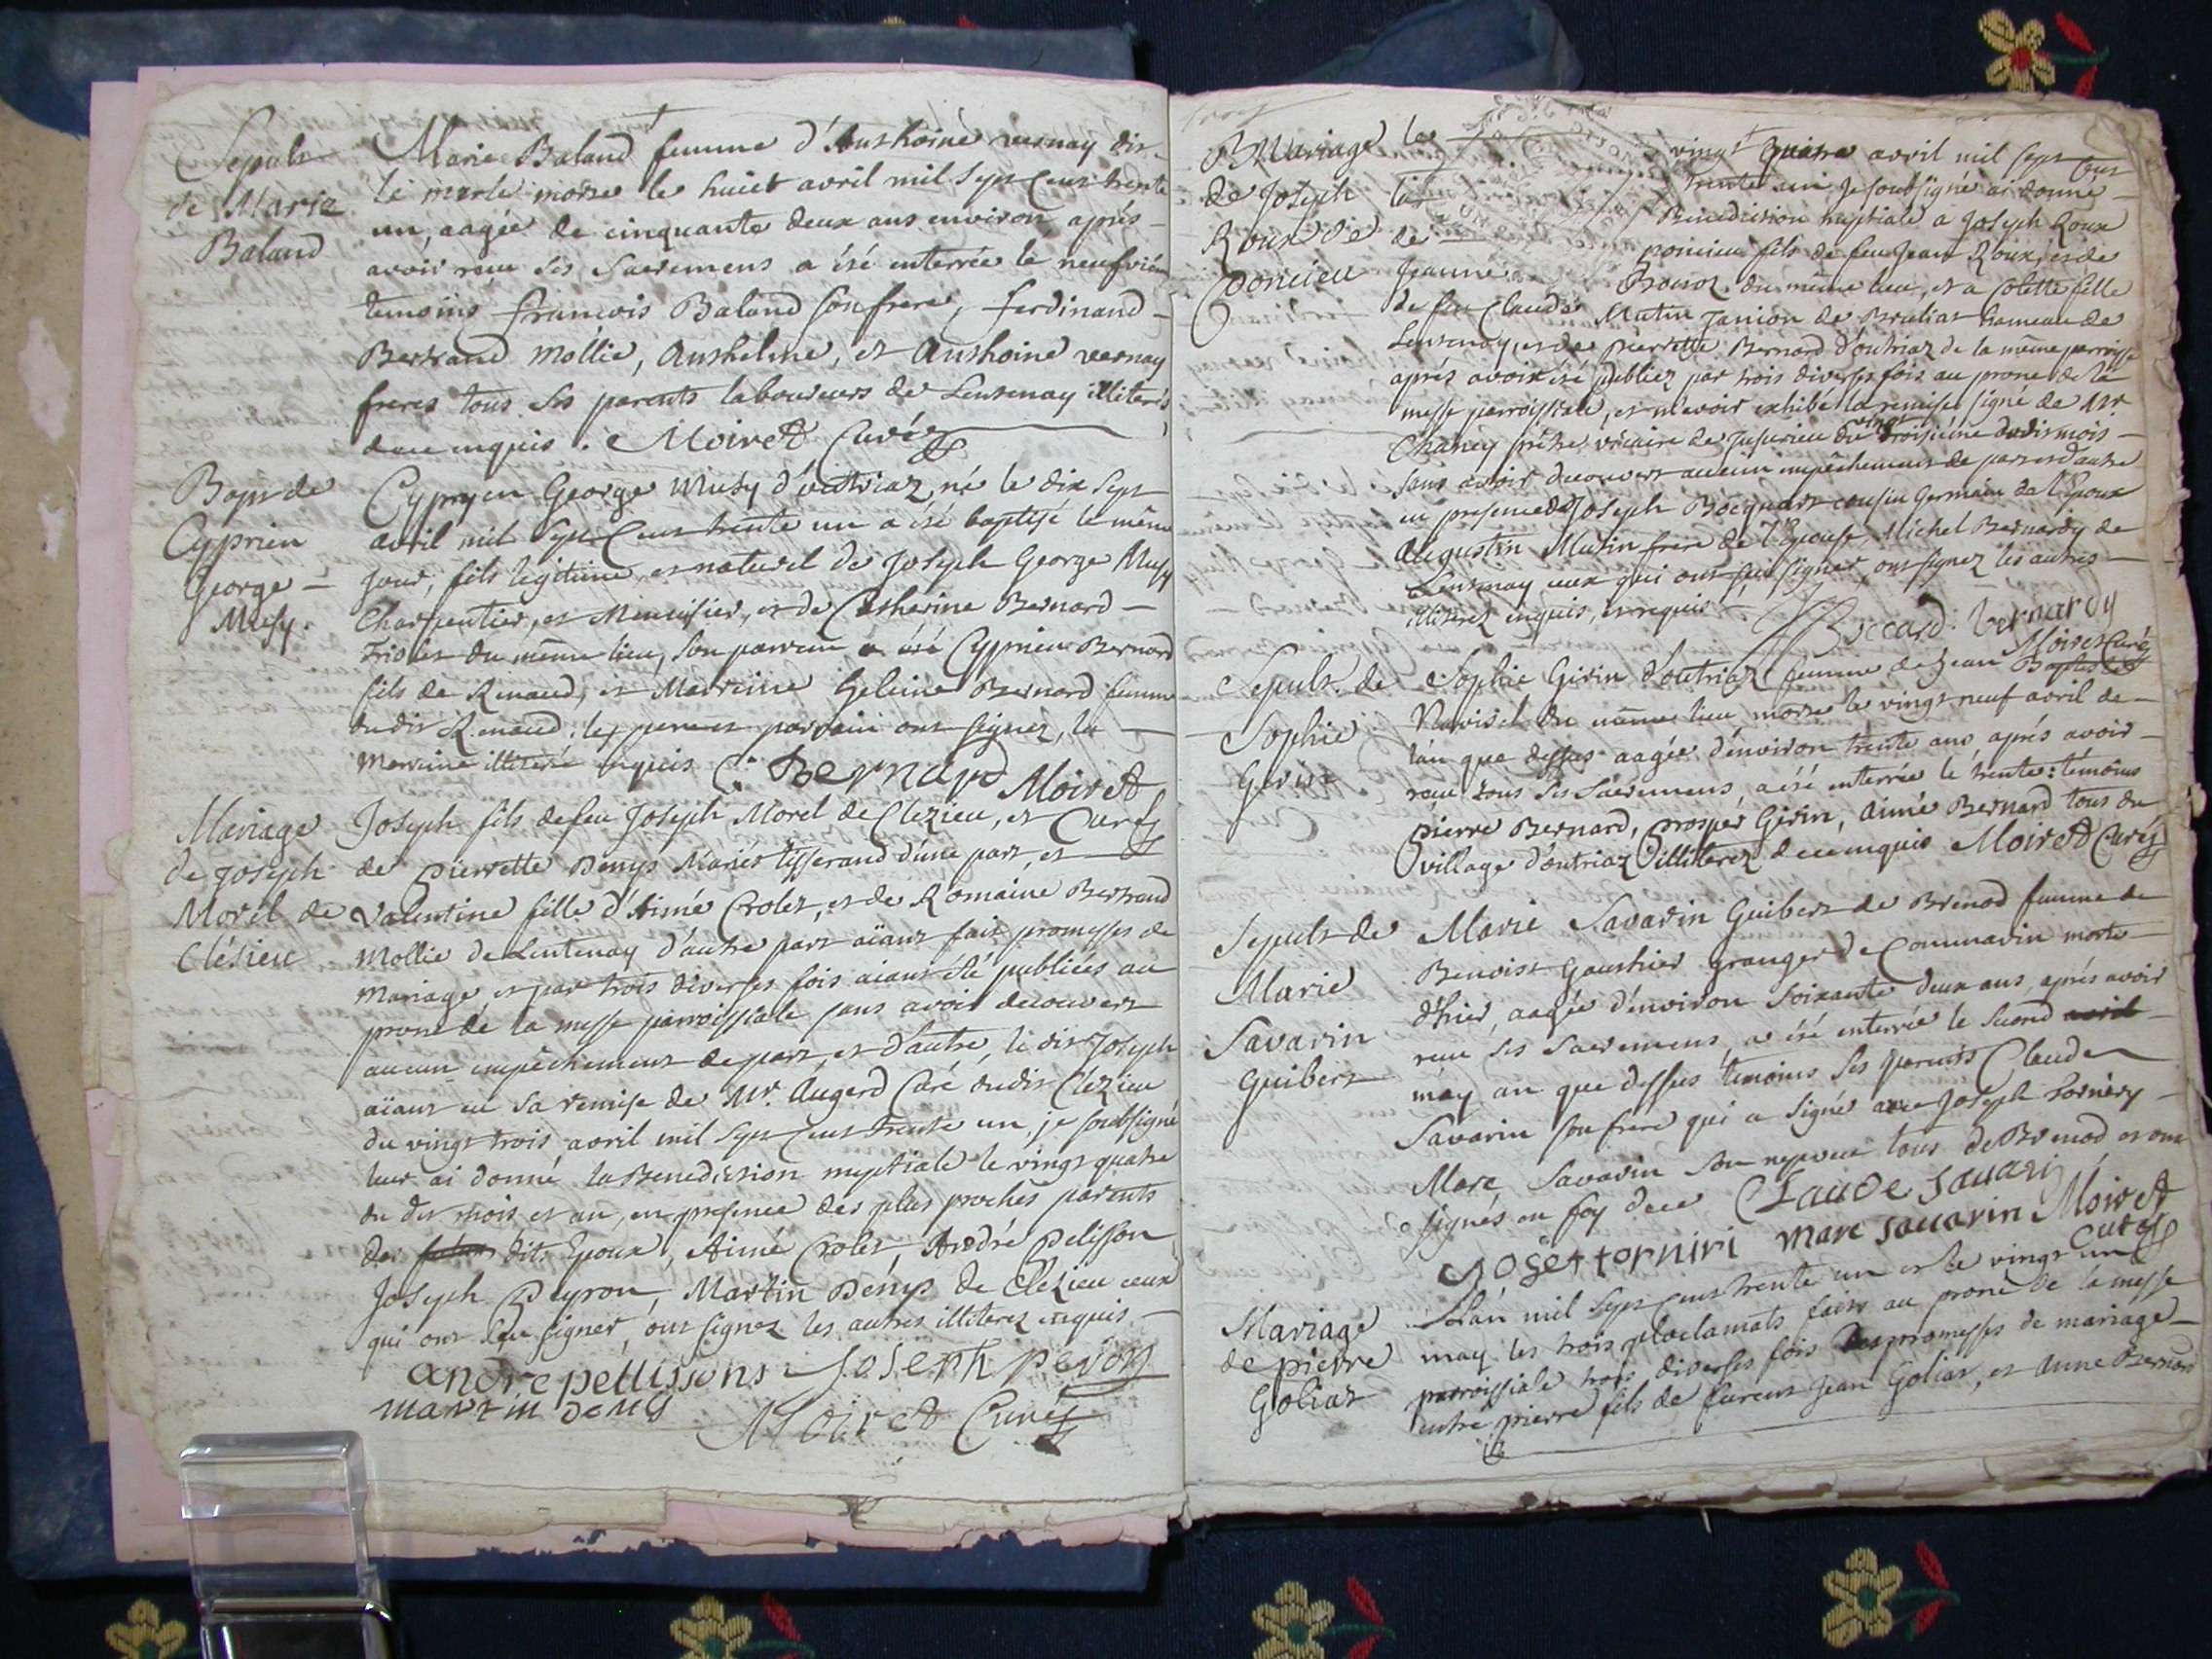 Sepult
de Marie
Baland
Marie Baland femme d'Anthoine vernay dit
le merle morte le huict avril mil sept cent trente
un, aagée de cinquante deux ans environ aprés
avoir reçu ses Sacremens a été enterrée le neufviém
temoins francois Baland son frere, ferdinand
Bertrand Mollie, Anthelme, et Anthoine vernay
freres tous ses parents laboureurs de Lentenay illiterés
de ce enquis. Moiret Curé
Bapt de
Cyprien
George
Musy.
Cyprien George Musy d'outriaz né le dix sept
avril mil sept cent trente un a été baptisé le même
jour, fils legitime et naturel de Joseph George Musy
Charpentier, et Menuisier, et de Catherine Bernard
du même lieu, son parrein a été Cyprien Bernard
fils de Renaud, et Marreine Bernard femme
dudit Renaud; les pere et parrain ont signez, la
Marreine illiteré enquis C: Bernard Moiret
Curé
Mariage
de Joseph
Morel de
Clésieu
Joseph fils de feu Joseph Morel de Clezieu, et
de Pierrette Denys Mariés tisserand d'une part, et
valentine fille d'Aimé Crolet, et de Romaine Bertrand
Mollie de Lentenay d'autre part aïant fait promesses de
Mariage, et par trois diverses fois aiant été publiées au
prone de la messe parroissiale sans avoir decouvert
aucun empêchement de part, et d'autre, le dit Joseph
aïant eu sa remise de Mr. Augerd Curé dudit Clézieu
du vingt trois avril mil sept cent trente un, je soubsigné
leur ai donné la Benediction nuptiale le vingt quatre
du dit mois et an, en presence des plus proches parents
des dits Epoux, Aimé Crolet, André Pelisson
Joseph Peyron, Martin Denys de Clezieu ceux
qui ont sçu signer, ont signez les autres illiterez enquis
andre pellissons Joseph peron
martin denys
Moiret Curé
Mariage
de Joseph
Roux de
Poncieu
le vingt quatre avril mil sept cent
trente un Je soubsigné ai donné
la Benediction nuptiale a Joseph Roux
de poncieu fils de feu Jean Roux, et de
Jeanne du même lieu, et a Colette fille
de feu Claude Mutin Janion de Brulias hameau de
Lentenay, et de pierrette Bernard d'outriaz de la même parroisse
aprés avoir été publiez par trois diverses fois au prone de la
messe parroissiale, et m'avoir exhibé la remise signé de Mr
Chaney prêtre vicaire de Jusurieu du vingt troisiéme dudit mois
sans avoir decouvert aucun empêchement de part et d'autre
en presence de Joseph Bocquard cousin Germain de l'Epoux
Augustin Mutin frere de l'Epouse, Michel Bernardy de
Lentenay ceux qui ont sçu signer, ont signez les autres
illiterez enquis, et requis
Boccard. bernardy
Moiret Curé
Sepult. de
Sophie
Girin
Sophie Girin d'outriaz femme de Jean Baptiste
Ravisel du même lieu morte le vingt neuf avril de
l'an que dessus aagée d'environ trente ans, aprés avoir
reçu tous ses Sacremens, a été enterrée le trente: témoins
pierre Bernard, prosper Girin, Aimé Bernard tous du
village d'outriaz illiterez de ce enquis Moiret Curé
Sepult de
Marie
Savarin
Guibert
Marie Savarin Guibert de Brenod femme de
Benoist Gauthier granger de Communarin morte
d'hier, aagée d'environ Soixante deux ans, aprés avoir
reçu ses Sacremens, a été enterrée le second avril
may an que dessus temoins ses parents Claude
Savarin son frere qui a signé avec Joseph Tornéry
Marc Savarin son nepveu tous de Brenod et ont
signés en foy de ce Claude Savari
Joset torniri marc savarin Moiret
Curé
Mariage
de pierre
Goliat
L'an mil sept cent trente un et le vingt un
may les trois proclamats faits au prone de la messe
parroissiale trois diverses fois des promesses de mariage
entre pierre fils de furent Jean Goliat, et Anne Bernard